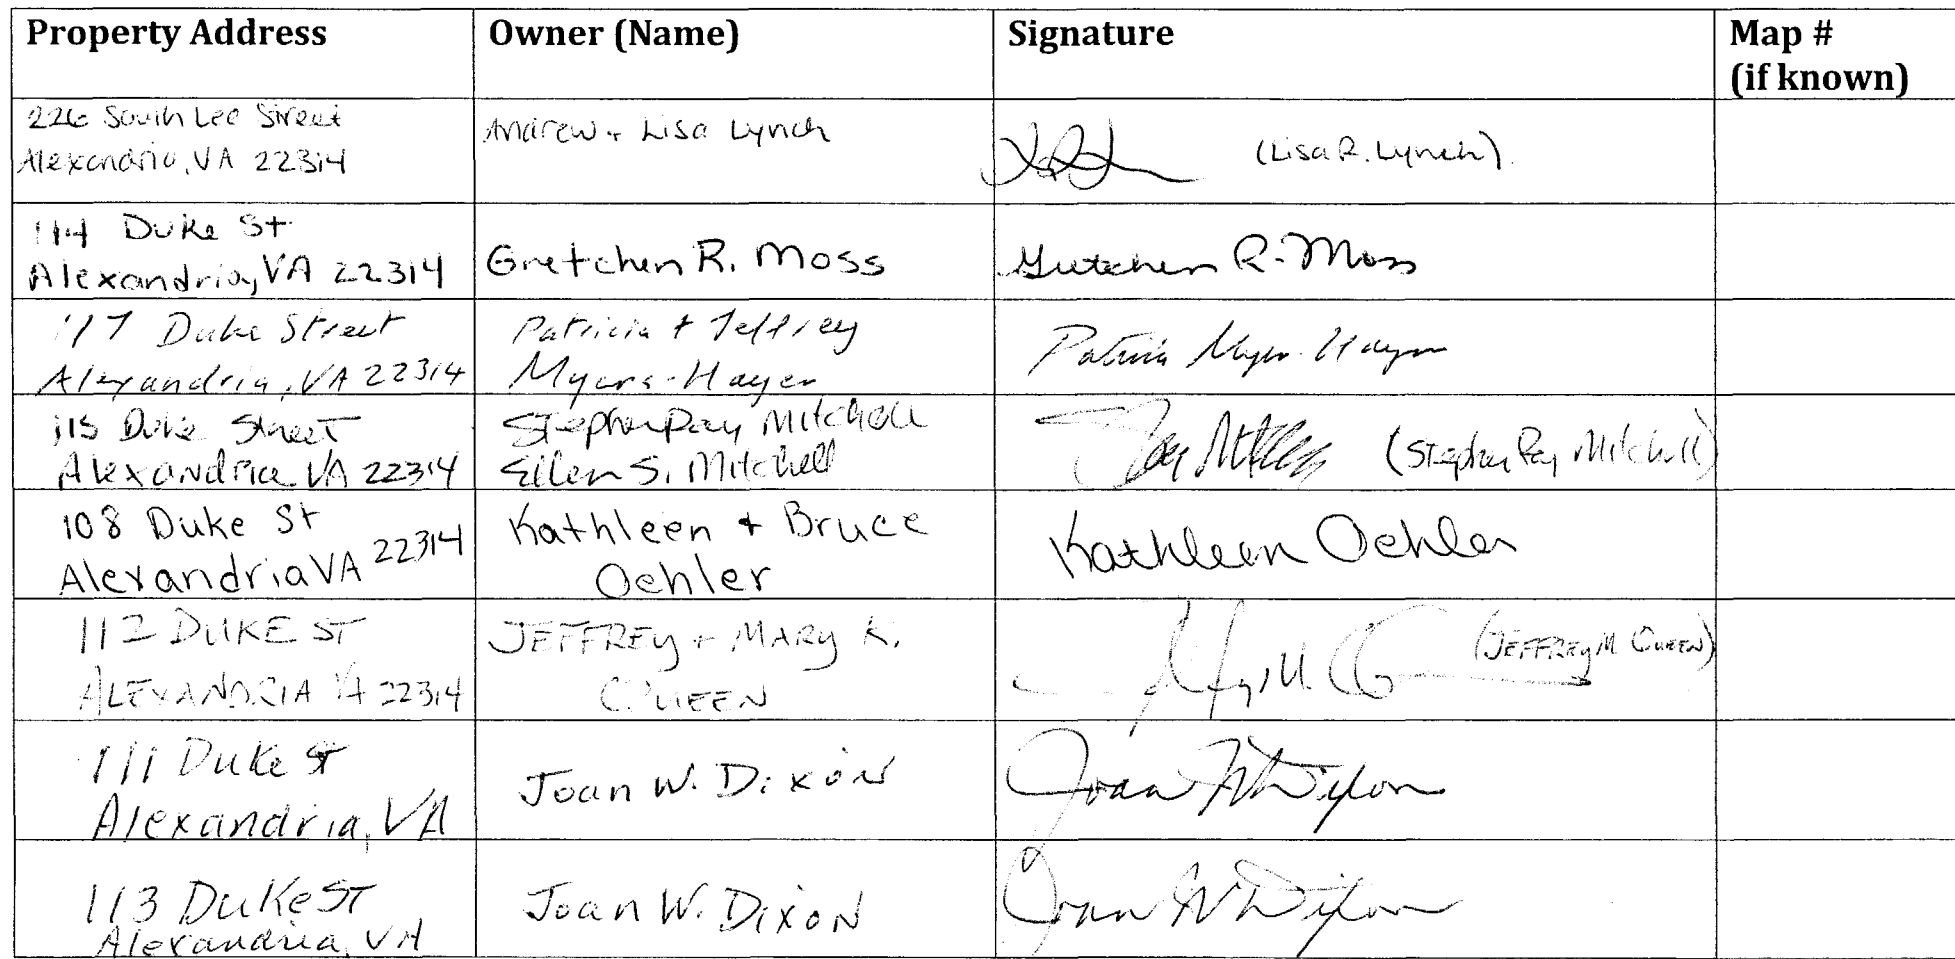 Property Address
Owner (Name)
Signature
Map #
(if known)
226 South Lee Street
Alexandria, VA 22314
Andrew + Lisa Lynch
(Lisa R. Lynch)
114 Duke St
Alexandria, VA 22314
Gretchen R. Moss
Gretchen R. Moss
117 Duke Street
Alexandria, VA 22314
Patricia + Jeffrey
Myers-Hayer
Patricia Myers-Hayer
115 Duke Street
Alexandria VA 22314
Stephen Ray Mitchell
Eileen S. Mitchell
Ray Mitchell (Stephen Ray Mitchell)
108 Duke St
Alexandria VA 22314
Kathleen + Bruce
Oehler
Kathleen Oehler
112 DUKE ST
ALEXANDRIA VA 22314
JEFFREY + MARY K.
QUEEN
(JEFFREY M. QUEEN)
111 Duke St
Alexandria, VA
Joan W. Dixon
Joan W Dixon
113 Duke ST
Alexandria, VA
Joan W. Dixon
Joan W Dixon